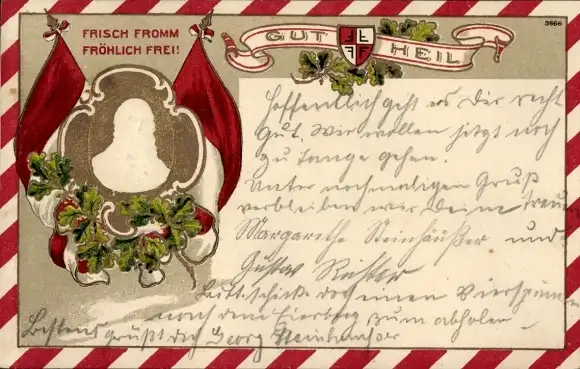 FRISCH FROMM
FRÖHLICH FREI!
GUT HEIL
3666
Hoffentlich geht es Dir recht
gut. Wir wollen jetzt noch
zu Tanze gehen.
Unter nochmaligen Gruß
verbleiben wir Deine treuen
Margarethe Steinhäußer und
Gustav Richter
Bitte schicke doch einen Vierspänner
nach dem Eierberg zum abholen
Bestens grüßt Dich Georg Steinhäußer